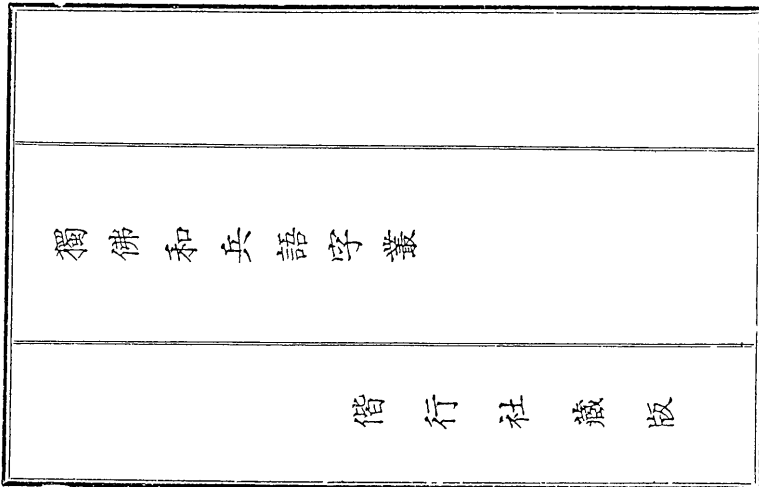 獨佛和兵語字叢
偕行社藏版